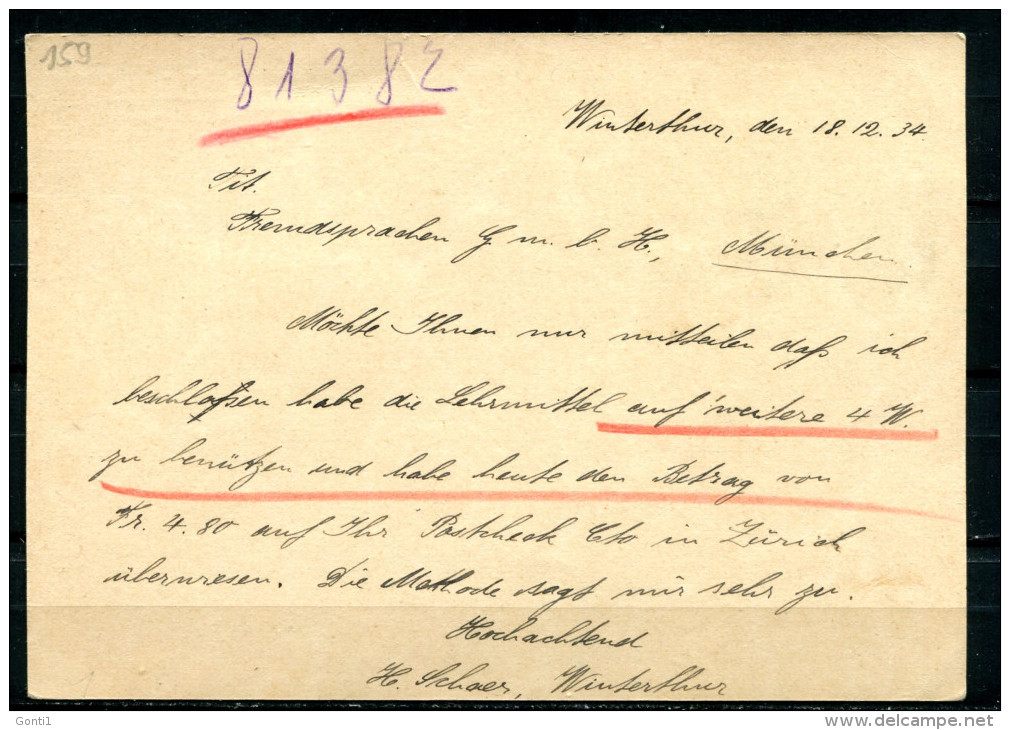 159
81382
Winterthur, den 18. 12. 34.
Tit.
Fremdsprachen G. m. b. H., München.
Möchte Ihnen nur mitteilen daß ich
beschloßen habe die Lehrmittel auf weitere 4 W.
zu benützen und habe heute den Betrag von
Fr. 4.80 auf Ihr Postcheck Cto in Zürich
überwiesen. Die Methode sagt mir sehr zu.
Hochachtend
H. Schaer, Winterthur
Gonti1
www.delcampe.net